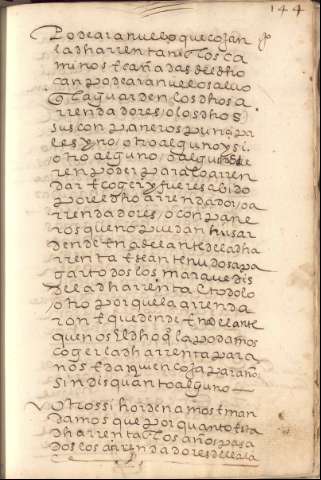 144
Podearanuello que cojan
la dha rrenta ni los ca
minos e cañadas del dho
can podear anuello saluo
q la guarden los dhos a
rrendadores o los dhos
sus conpaneros por si o pa
les y no otro alguno y si
otro alguno o algu
ren poder para lo arren
dar e coger y fuere sabido
por el dho arrendador o a
rrendadores o conpane
ros que no puedan husar
dende en adelante de la dha
rrenta e sean tenudos a pa
gar todos los maravedis
de la dha rrenta e todo lo
otro por que la arrenda
ron e que dende en adelante
que nos el dho q la podamos
coger la dha rrenta para
nos e da quien coja para nos
sin disquanto alguno
Otrossi hordenamos e man
damos que por quanto esta
dha rrenta los años pasa
dos los arrendadores della